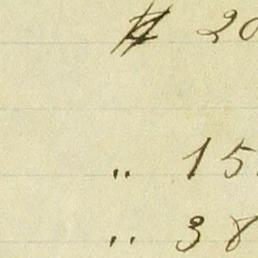 # 20
„ 15
„ 38